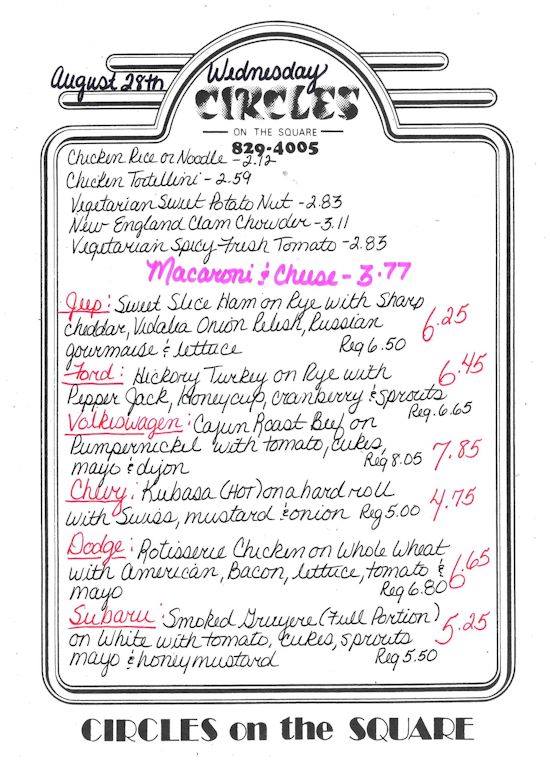 August 28th Wednesday
CIRCLES
ON THE SQUARE
829-4005
Chicken Rice or Noodle - 2.12
Chicken Tortellini - 2.59
Vegetarian Sweet Potato Nut - 2.83
New England Clam Chowder - 3.11
Vegetarian Spicy Fresh Tomato - 2.83
Macaroni & Cheese - 3.77
Jeep: Sweet Slice Ham on Rye with Sharp
cheddar, Vidalia Onion Relish, Russian 6.25
gourmaise & lettuce Reg 6.50
Ford: Hickory Turkey on Rye with 6.45
Pepper Jack, honeycup, cranberry & sprouts
Reg. 6.65
Volkswagen: Cajun Roast Beef on
Pumpernickel with tomato, cukes, 7.85
mayo & dijon Reg 8.05
Chevy: Kubasa (HOT) on a hard roll 4.75
with Swiss, mustard & onion Reg 5.00
Dodge: Rotisserie Chicken on Whole Wheat
with American, Bacon, lettuce, tomato & 6.65
mayo Reg 6.80
Subaru: Smoked Gruyere (Full Portion) 5.25
on White with tomato, cukes, sprouts
mayo & honey mustard Reg 5.50
CIRCLES on the SQUARE